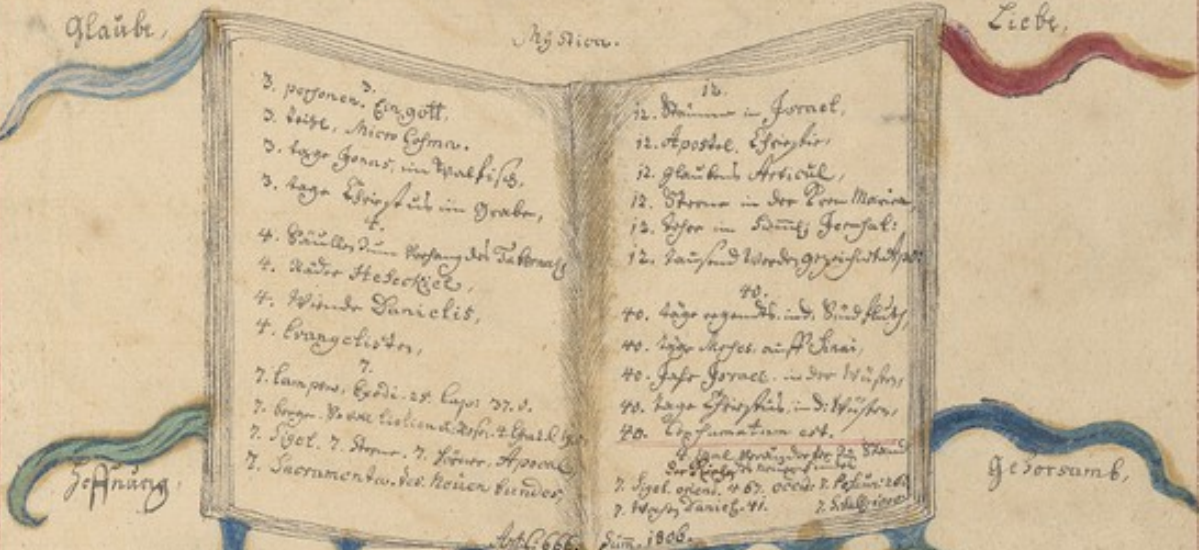 Glaube,
Mystica.
Liebe,
3.
3. personen. Ein gott.
3. theil. Micro Cosmu.
3. tage Jonas, im Walfisch,
3. tage Christus im Grabe,
4.
4. Säulle zum Vorhang des Tabernacl
4. Räder Heseckiel,
4. Winde Danielis,
4. Evangelisten,
7.
7. Lampen, Exodi. 25. Cap: 37. v.
7. bergen
7. Sigel. 7. Sterne. 7. Hörner. Apocal
7. Sacramenta. des Neuen bundes,
12.
12. Stämme in Israel,
12. Apostel. Christi,
12. glaubens Articul,
12. Sterne in der Cron Mariae,
12. Thore im Himml: Jerusal:
12. tausend werden gezeichnet Apoc
40.
40. tage regendts. ind. Sündfluth,
40. tage Moses. auff Sinai,
40. Jahr Israel. in der Wüsten,
40. tage Christus, ind: Wüsten,
40. Consumatum est.
7. Sigel.
7. Daniel.
Hoffnung.
Gehorsamb,
666. Sum. 1806.